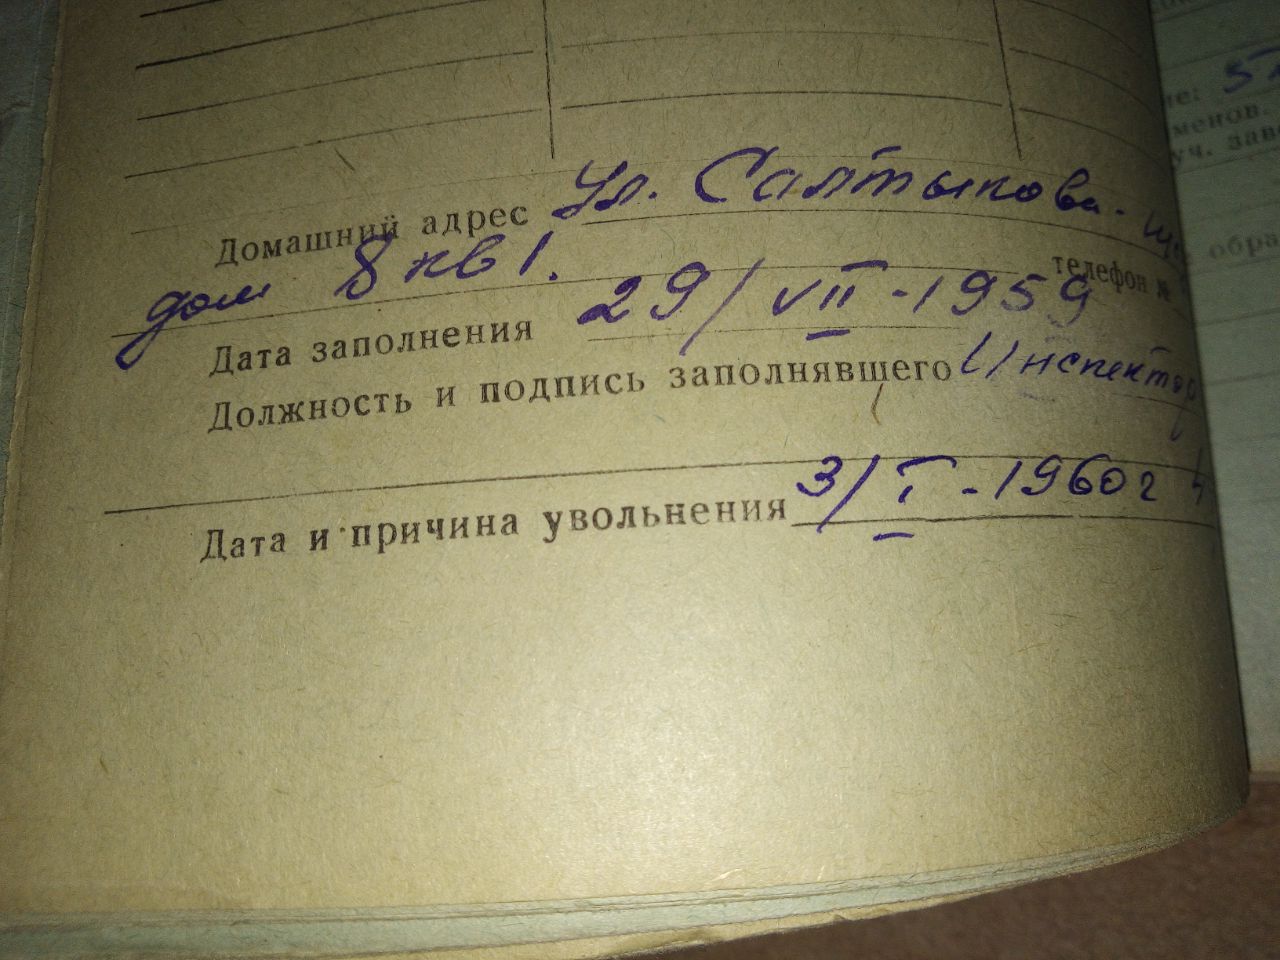 Домашний адрес ул. Салтыкова-Щ
телефон №
дом 8 кв 1.
Дата заполнения 29/VII-1959
Должность и подпись заполнявшего Инспектор
Дата и причина увольнения 3/I-1960г
ие: 5
менов.
уч. зав
обра